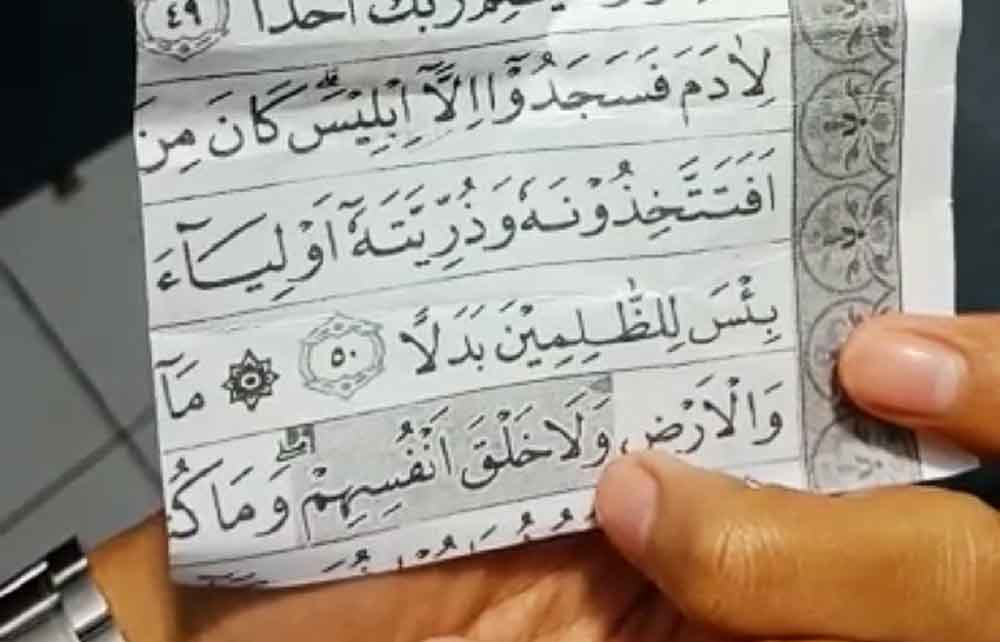 رَبُّكَ اَحَدًا ٤٩
لِاٰدَمَ فَسَجَدُوْٓا اِلَّآ اِبْلِيْسَۗ كَانَ مِنَ
اَفَتَتَّخِذُوْنَهٗ وَذُرِّيَّتَهٗٓ اَوْلِيَاۤءَ
بِئْسَ لِلظّٰلِمِيْنَ بَدَلًا ٥٠ مَآ
وَالْاَرْضِ وَلَا خَلْقَ اَنْفُسِهِمْ وَمَا